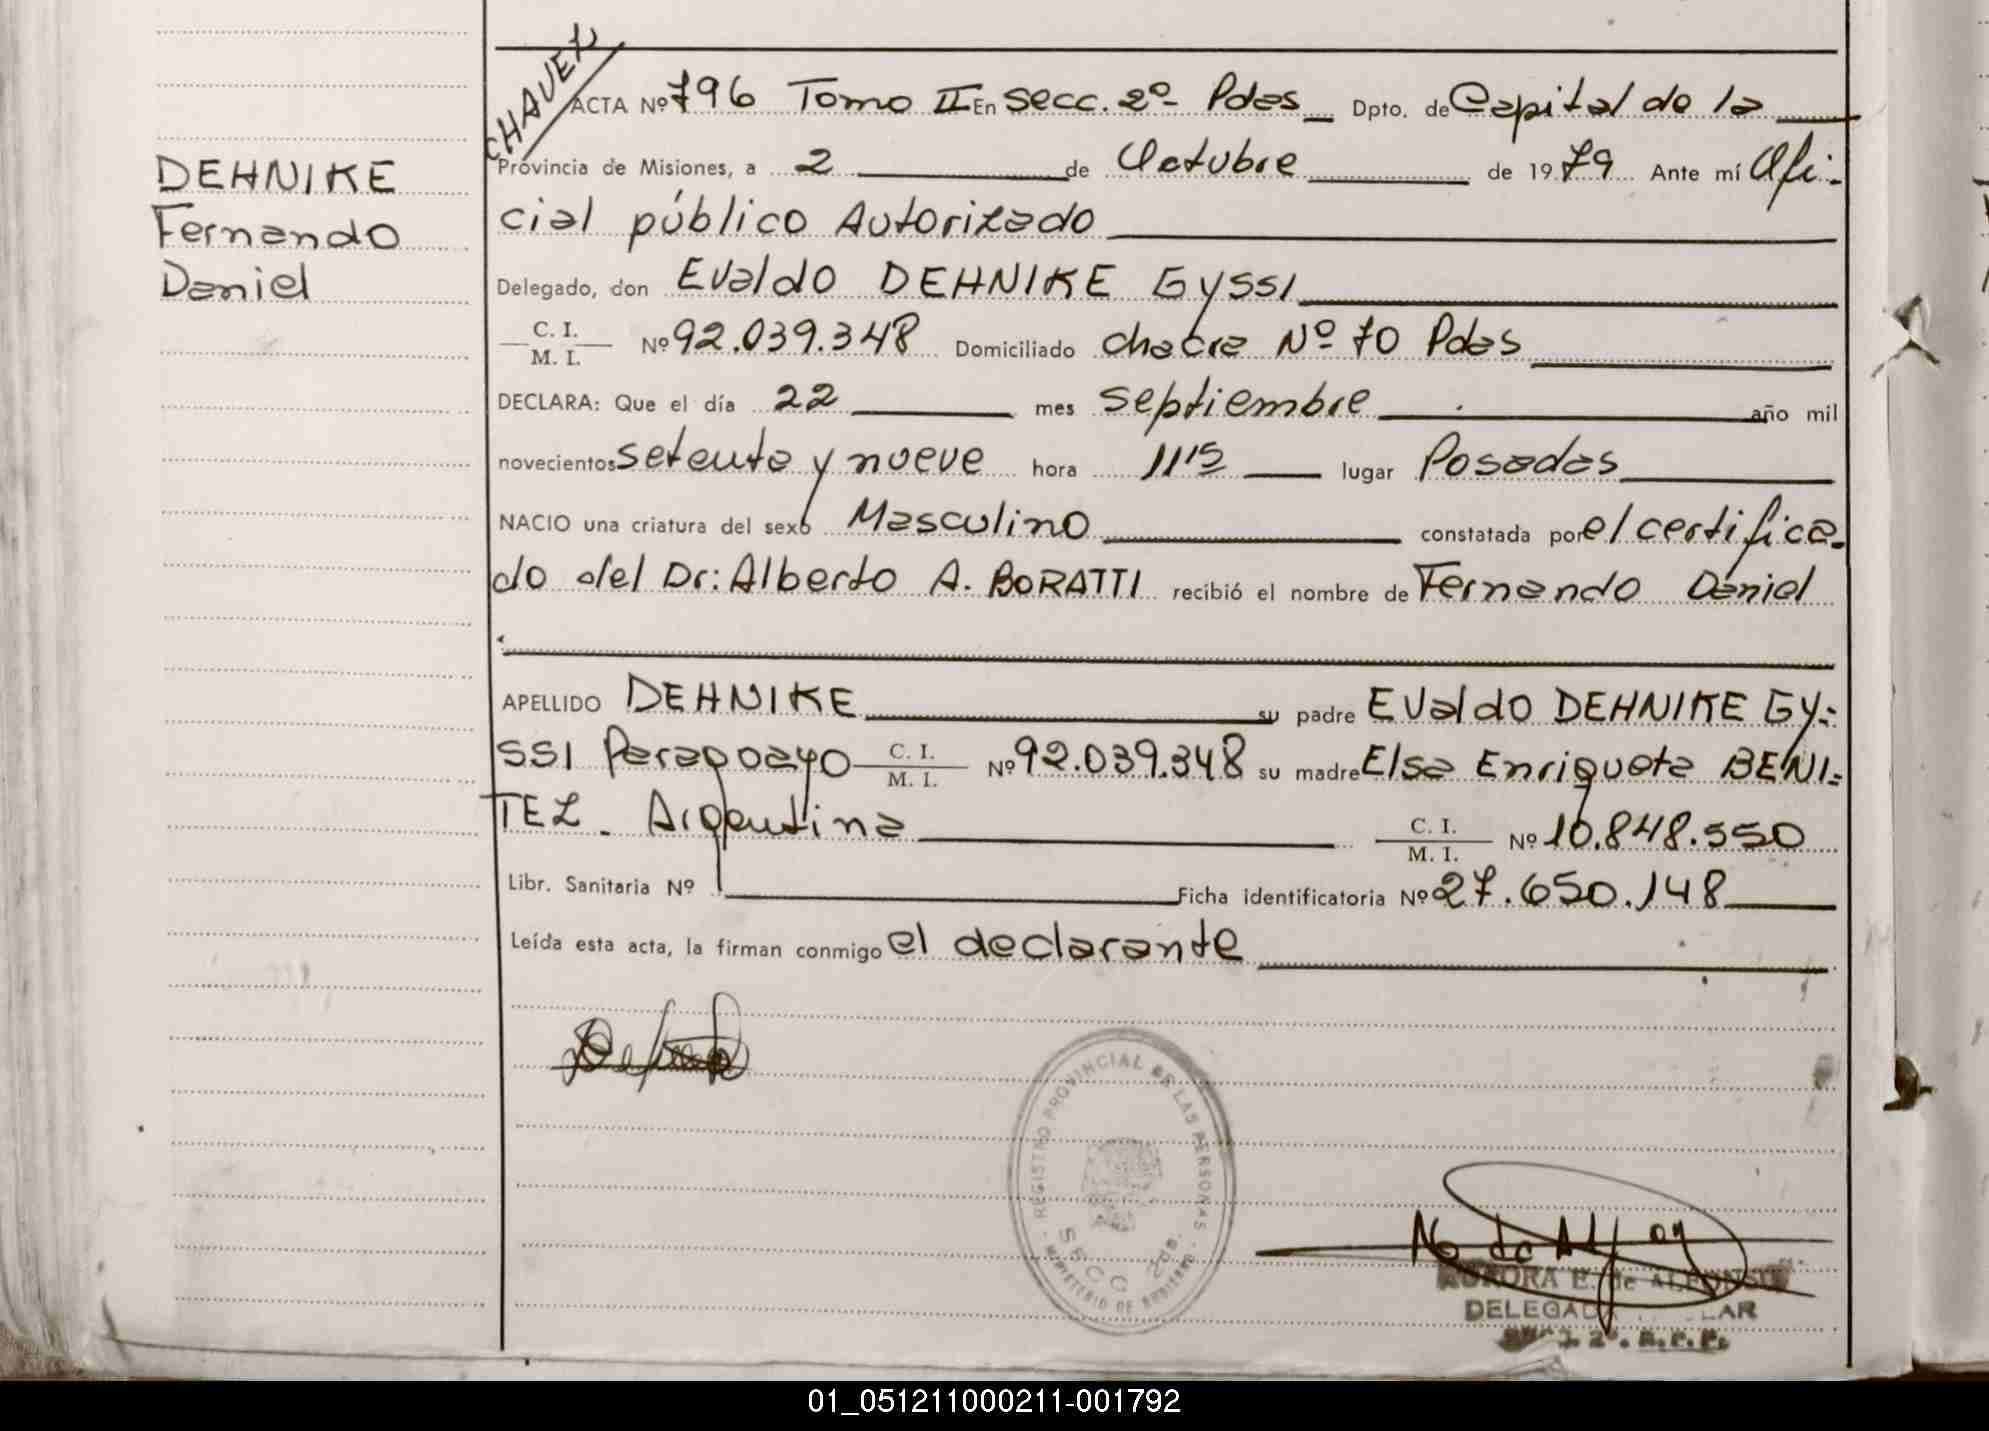 CHAVEZ
ACTA Nº 796 Tomo II En Secc. 2º Pdas Dpto. de Capital de la
Provincia de Misiones, a 2 de Octubre de 1979 Ante mí Ofi-
DEHNIKE
Fernando
Daniel
cial público Autorizado
Delegado, don Evaldo DEHNIKE GYSSI
C. I.
M. I. Nº 92.039.348 Domiciliado chacra Nº 70 Pdas
DECLARA: Que el día 22 mes septiembre año mil
novecientos setenta y nueve hora 11'15 lugar Posadas
NACIO una criatura del sexo Masculino constatada por el certifica-
do del Dr: Alberto A. BORATTI recibió el nombre de Fernando Daniel
APELLIDO DEHNIKE su padre Evaldo DEHNIKE GY-
SSI Paraguayo C. I. M. I. Nº 92.039.348 su madre Elsa Enriqueta BENI-
TEZ - Argentina C. I. M. I. Nº 10.848.550
Libr. Sanitaria Nº Ficha identificatoria Nº 27.650.148
Leída esta acta, la firman conmigo el declarante
REGISTRO PROVINCIAL DE LAS PERSONAS
SECC. 2da.
MINISTERIO DE GOBIERNO
AURORA E. de ALFONSO
01_051211000211-001792